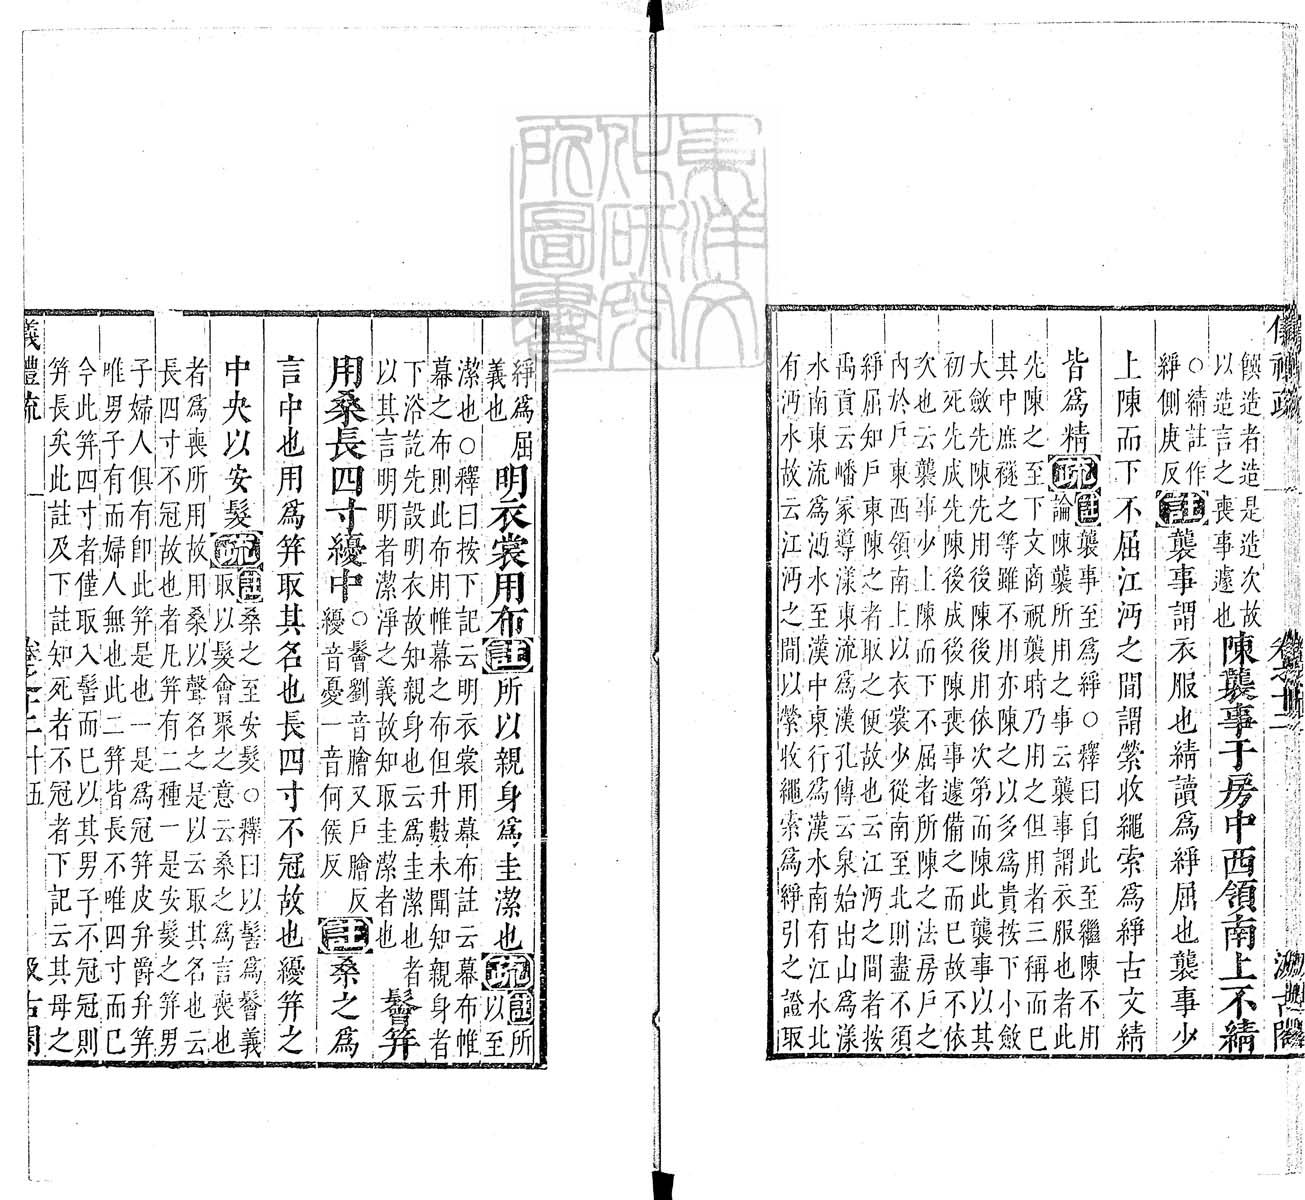 饌造者造是造次故
以造言之喪事遽也
陳襲事于房中西領南上不綪
○綪註作
綘側庚反
註襲事謂衣服也綪讀爲綘屈也襲事少
上陳而下不屈江沔之間謂縈收繩索爲綘古文綪
皆爲精
疏註襲事至爲綘○釋曰自此至繼陳不用
論陳襲所用之事云襲事謂衣服也者此
先陳之至下文商祝襲時乃用之但用者三稱而已
其中庶襚之等雖不用亦陳之以多爲貴按下小斂
大斂先陳先用後陳後用依次第而陳此襲事以其
初死先成先陳後成後陳喪事遽備之而已故不依
次也云襲事少上陳而下不屈者所陳之法房戶之
內於戶東西領南上以衣裳少從南至北則盡不須
綘屈知戶東陳之者取之便故也云江沔之間者按
禹貢云嶓冢導漾東流爲漢孔傳云泉始出山爲漾
水南東流爲沔水至漢中東行爲漢水南有江水北
有沔水故云江沔之間以縈收繩索爲綘引之證取
綘爲屈
義也
明衣裳用布
註所以親身爲圭潔也
疏註所以至
潔也○釋曰按下記云明衣裳用幕布註云幕布帷
幕之布則此布用帷幕之布但升數未聞知親身者
下浴訖先設明衣故知親身也云爲圭潔也者
以其言明明者潔淨之義故知取圭潔者也
鬠笄
用桑長四寸纋中
○鬠劉音膾又戶膾反
纋音憂一音何侯反
註桑之爲
言中也用爲笄取其名也長四寸不冠故也纋笄之
中央以安髮
疏註桑之至安髮○釋曰以髻爲鬠義
取以髮會聚之意云桑之爲言喪也
者爲喪所用故用桑以聲名之是以云取其名也云
長四寸不冠故也者凡笄有二種一是安髮之笄男
子婦人俱有卽此笄是也一是爲冠笄皮弁爵弁笄
唯男子有而婦人無也此二笄皆長不唯四寸而已
今此笄四寸者僅取入髻而已以其男子不冠冠則
笄長矣此註及下註知死者不冠者下記云其母之